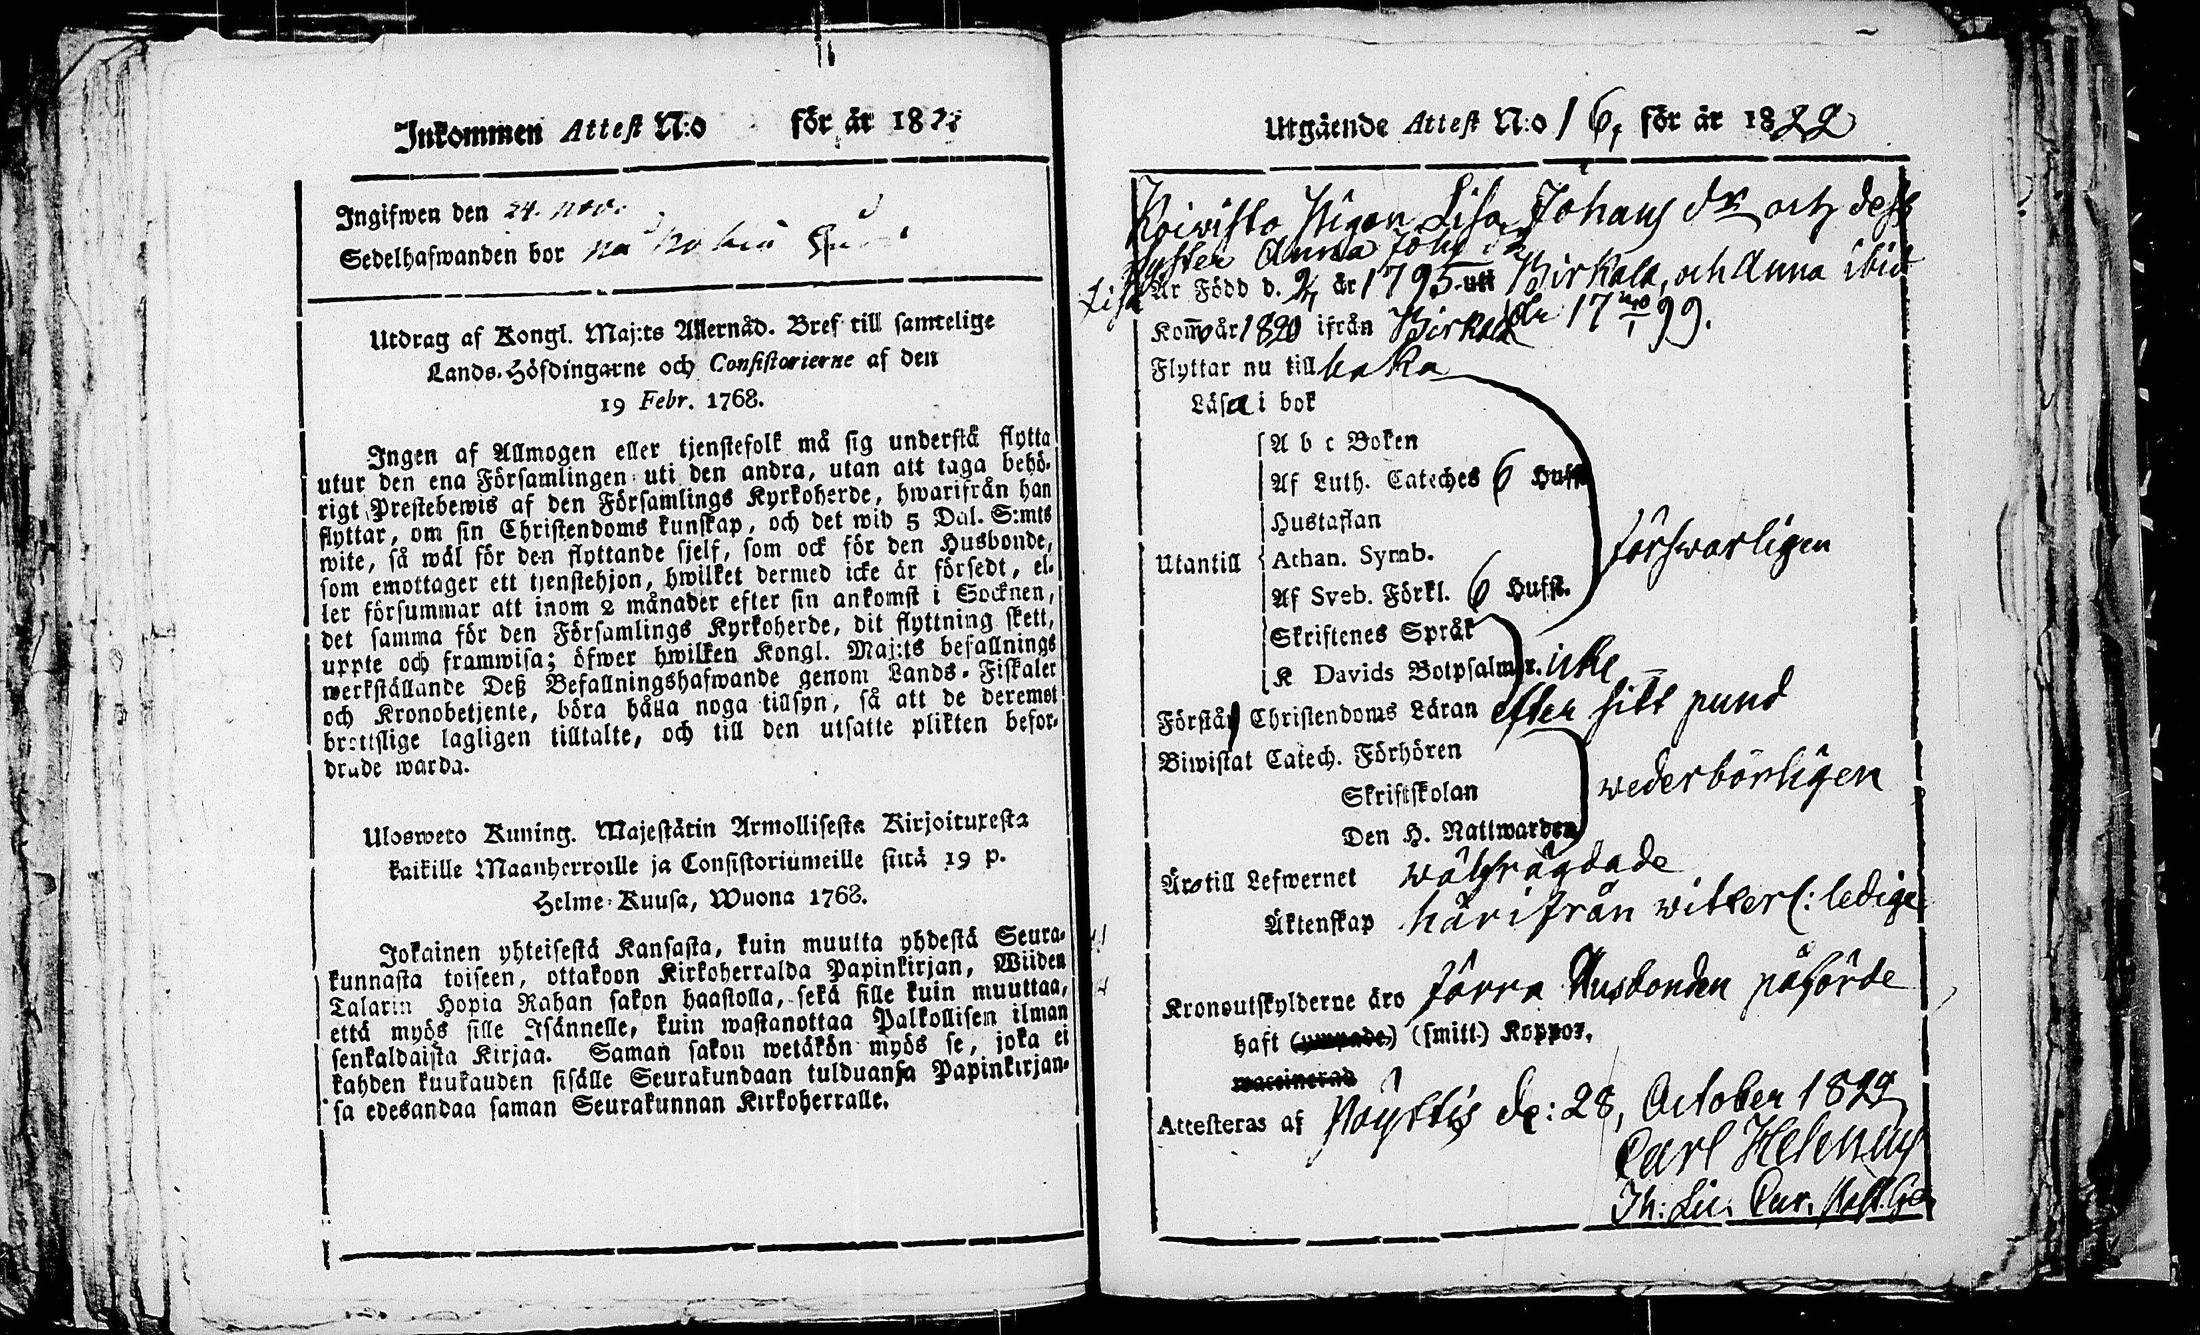 Inkommen Attest N:o för år 1822
Ingifwen den 24. nov.
Sedelhafwanden bor
Utdrag af Kongl. Maj:ts Allernåd. Bref till samtelige
Lands-Höfdingarne och Consistorierne af den
19 Febr. 1768.
Ingen af Allmogen eller tjenstefolk må sig understå flytta
utur den ena Församlingen uti den andra, utan att taga behö-
rigt Prestebewis af den Församlings Kyrkoherde, hwarifrån han
flyttar, om sin Christendoms kunskap, och det wid 5 Dal. S:mts
wite, så wäl för den flyttande sjelf, som ock för den Husbonde,
som emottager ett tjenstehjon, hwilket dermed icke är försedt, el-
ler försummar att inom 2 månader efter sin ankomst i Socknen,
det samma för den Församlings Kyrkoherde, dit flyttning skett,
uppte och framwisa; öfwer hwilken Kongl. Maj:ts befallnings
werkställande Deß Befallningshafwande genom Lands-Fiskaler
och Kronobetjente, böra hålla noga tillsyn, så att de deremot
brottslige lagligen tilltalte, och till den utsatte plikten befor-
drade warda.
Ulosweto Kuning. Majestätin Armollisesta Kirjoituxesta
kaikille Maanherroille ja Consistoriumeille siitä 19 p.
Helme-Kuusa, Wuona 1768.
Jokainen yhteisestä Kansasta, kuin muutta yhdestä Seura-
kunnasta toiseen, ottakoon Kirkoherralda Papinkirjan, Wiiden
Talarin Hopia Rahan sakon haastolla, sekä sille kuin muuttaa,
että myös sille Isännelle, kuin wastanottaa Palkollisen ilman
senkaldaista Kirjaa. Saman sakon wetäkön myös se, joka ei
kahden kuukauden sisälle Seurakundaan tulduansa Papinkirjan-
sa edesandaa saman Seurakunnan Kirkoherralle.
Utgående Attest N:o 16, för år 1822
Koiwisto Pigan Lisa Johans dr och dess
syster Anna Joh: dr
Lisa Är Född d. 2/1 år 1795 utt Birkala, och Anna ibid
Kom̄o år 1820 ifrån Birkala den 17 99.
Flyttar nu till baka
Läsa i bok
A b c Boken
Af Luth. Cateches 6 Hufst.
Hustaflan
Utantill Athan. Symb. försvarligen
Af Sveb. Förkl. 6 Hufst.
Skriftenes Språk
K Davids Botpsalmer. icke
Förstå Christendoms Läran efter sitt pund
Biwistat Catech. Förhören
Skriftskolan wederbörligen
Den H. Nattwarden
Äro till Lefwernet wälfrägdade
Äktenskap härifrån witterl: ledige
Kronoutskylderne äro förra Husbonden påförde
haft (ympade) (smitt.) Koppor.
waccinerad
Attesteras af Pöyttis d: 28, October 1822
Carl Helenius
Th: Lic. Cur. Past. Ge